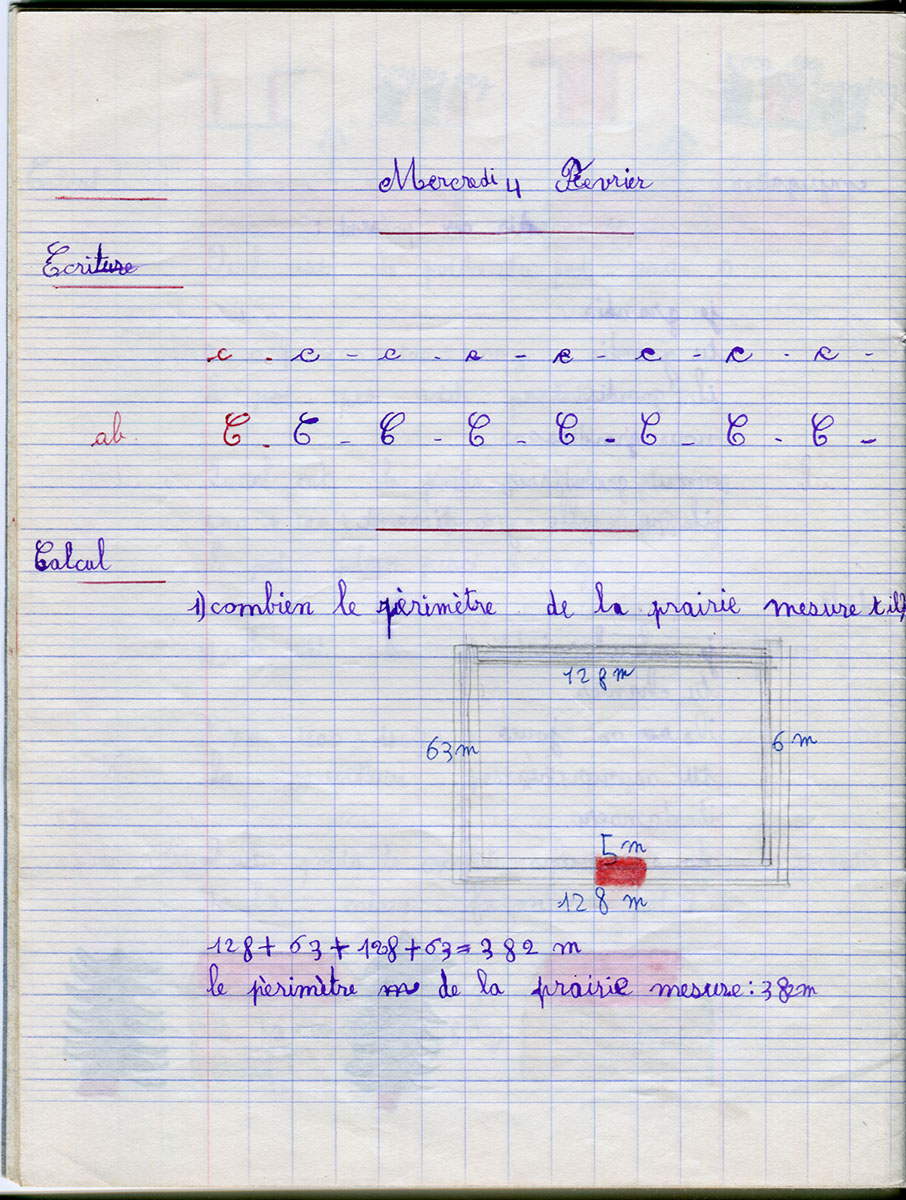 Mercredi 4 Fevrier
Ecriture
c - c - c - c - c - c - c - c -
ab. C - C - C - C - C - C - C - C -
Calcul
1) combien le pèrimètre de la prairie mesure t il?
128 m
63 m
6 m
5 m
128 m
128 + 63 + 128 + 63 = 382 m
le pèrimètre m de la prairie mesure : 382m